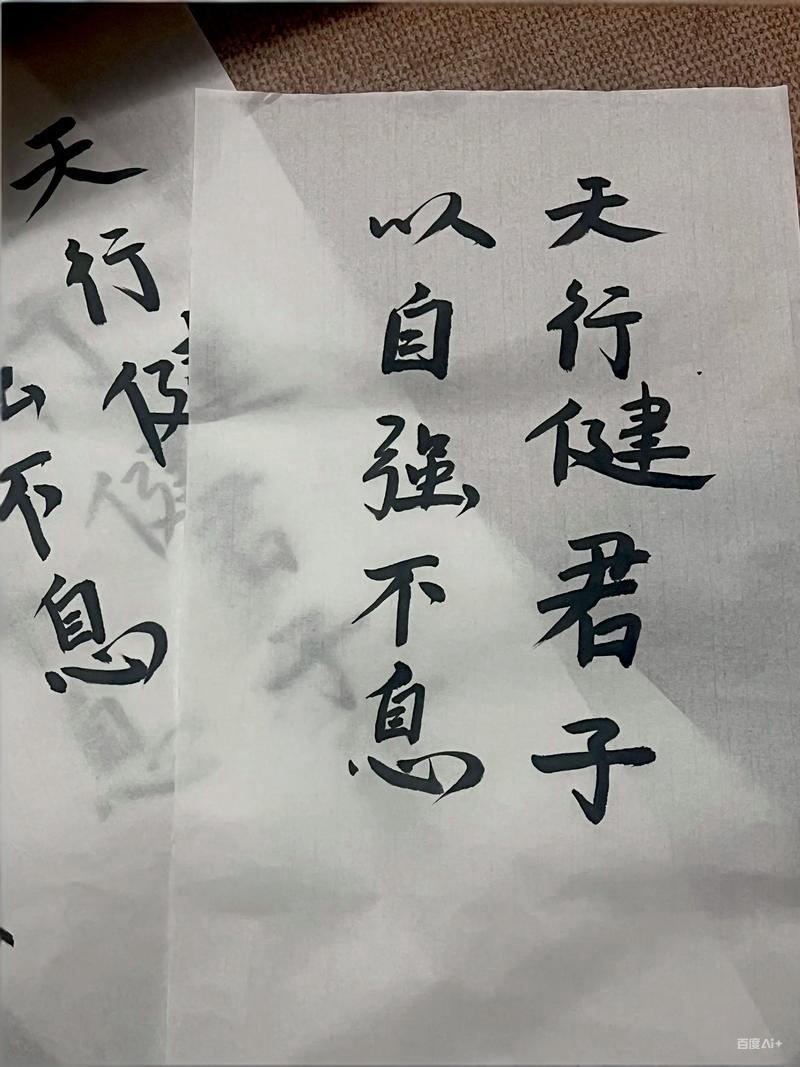 天行健君子
以自强不息
天行健
不息
百度Ai+